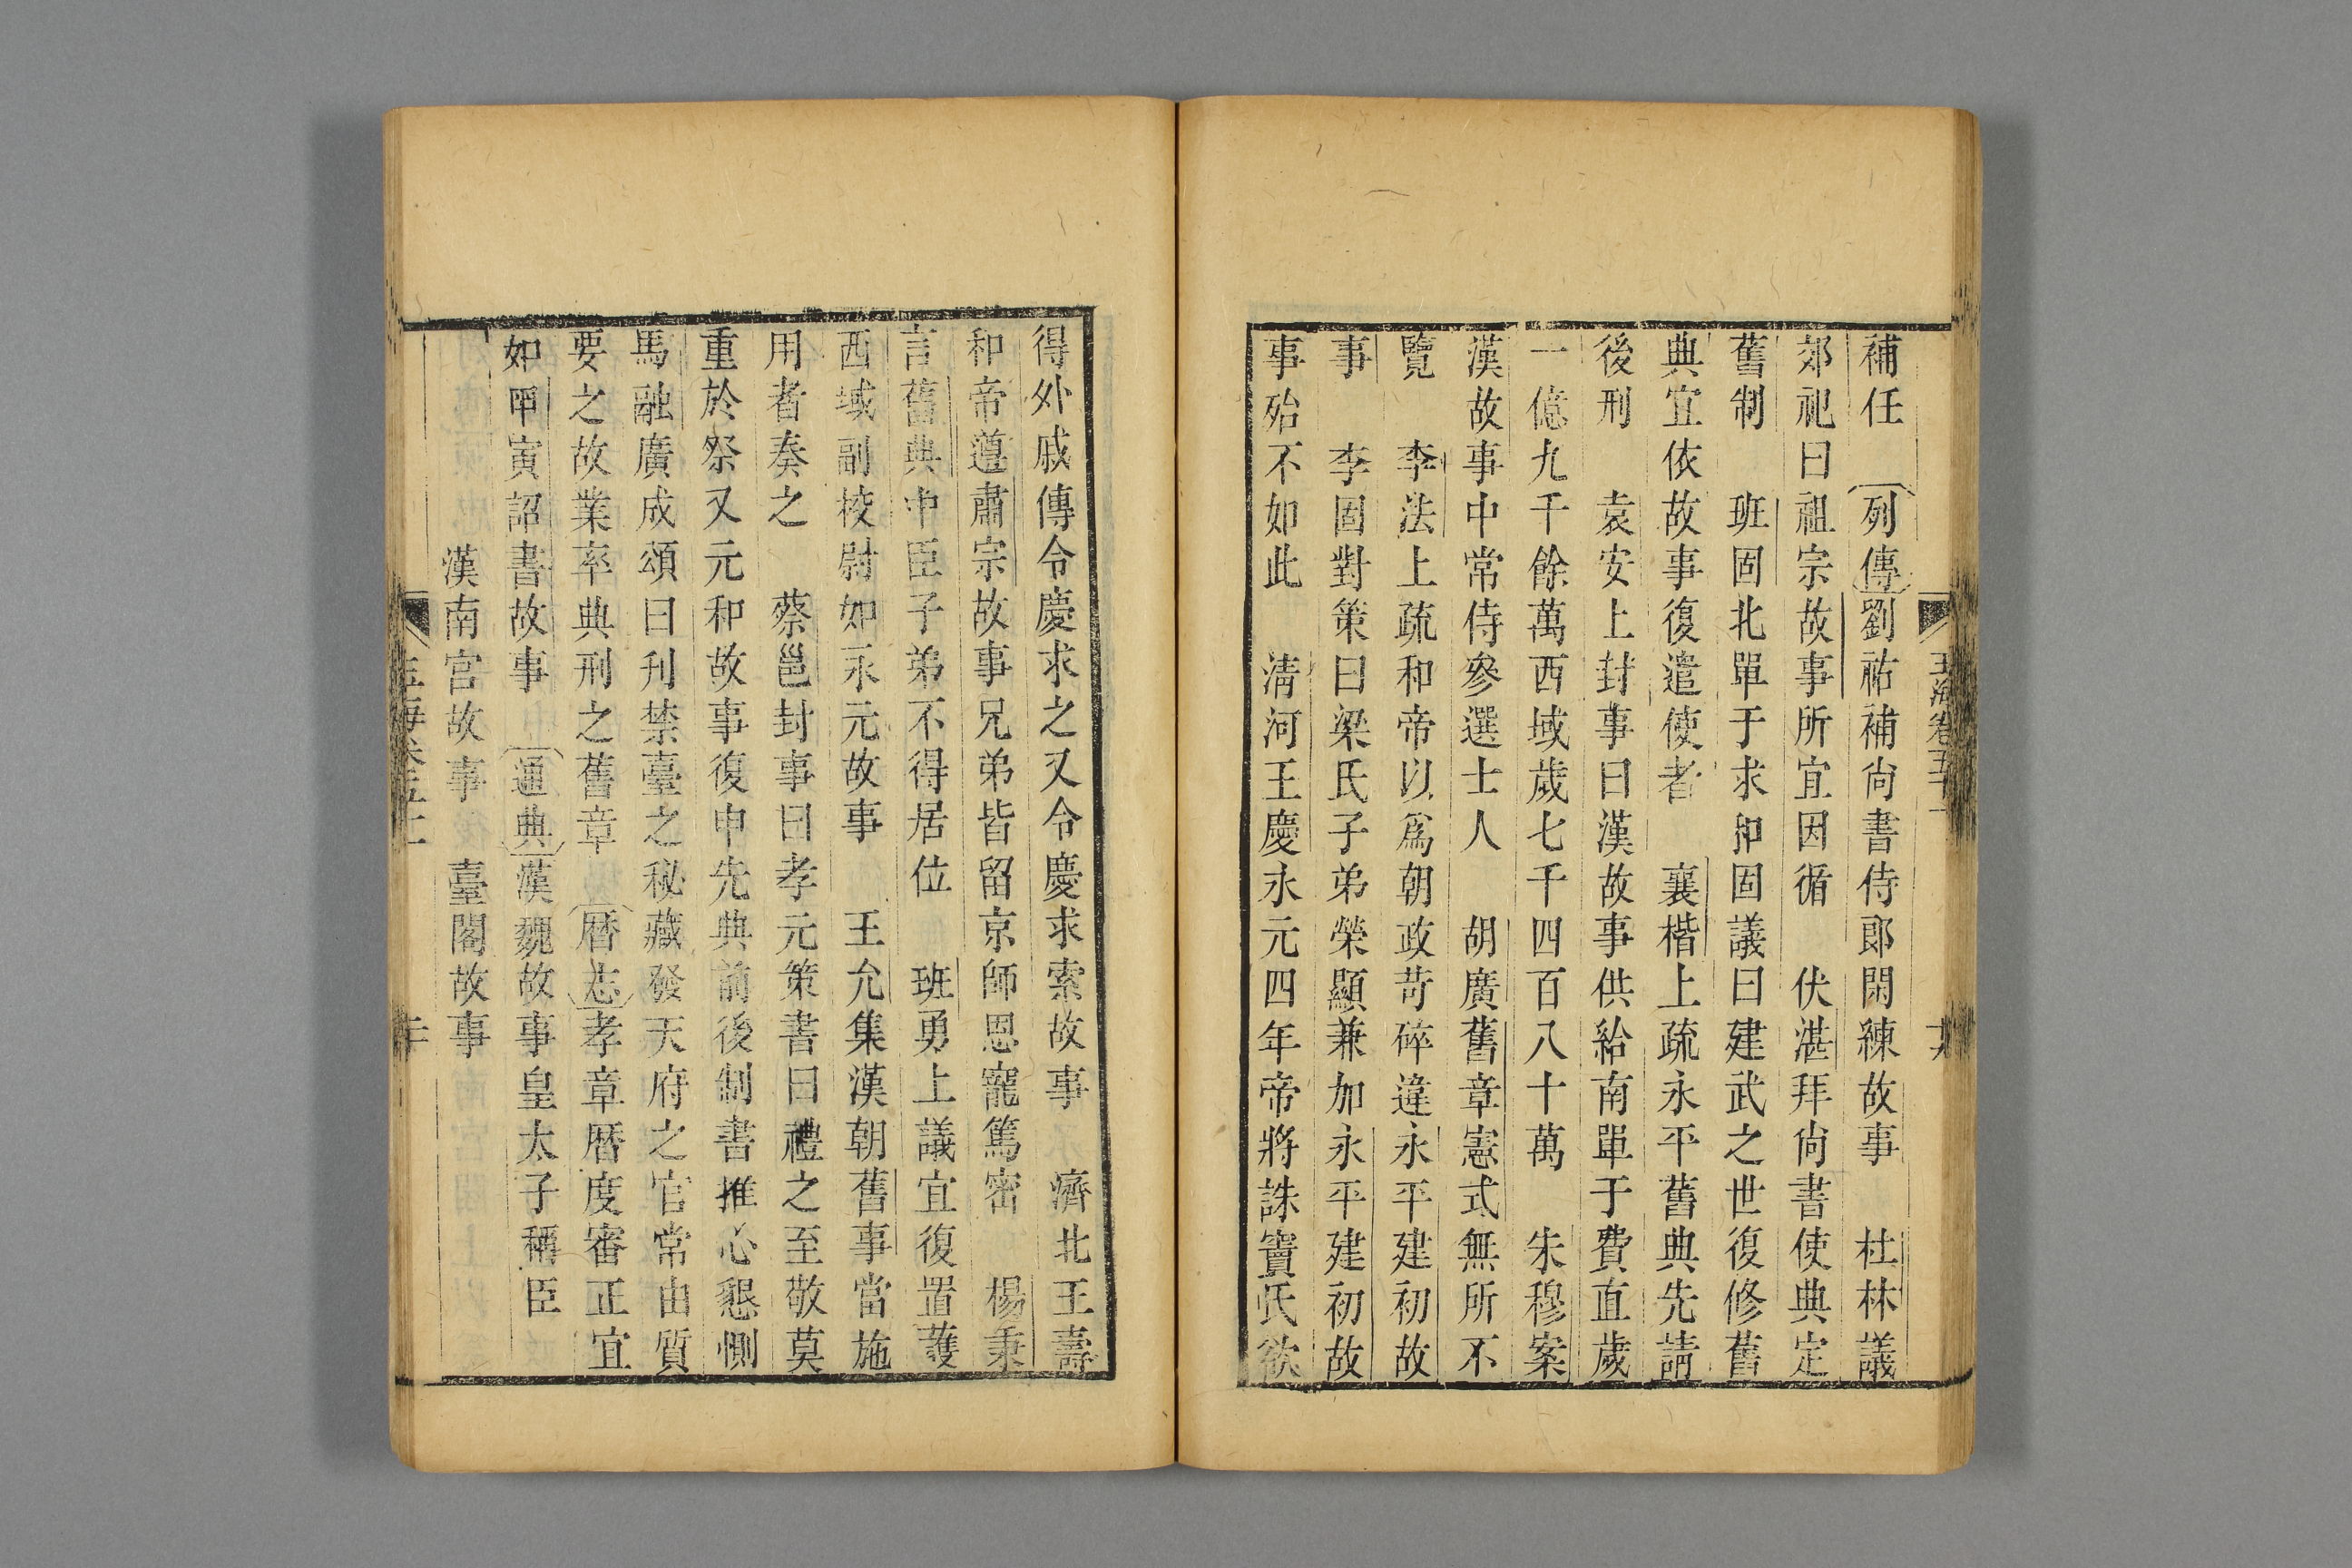 補任　列傳劉祐補尚書侍郎閑練故事　杜林議
郊祀曰祖宗故事所宜因循　伏湛拜尚書使典定
舊制　班固北單于求和固議曰建武之世復修舊
典宜依故事復遣使者　襄楷上疏永平舊典先請
後刑　袁安上封事曰漢故事供給南單于費直歲
一億九千餘萬西域歲七千四百八十萬　朱穆案
漢故事中常侍參選士人　胡廣舊章憲式無所不
覽　李法上疏和帝以爲朝政苛碎違永平建初故
事　李固對策曰梁氏子弟榮顯兼加永平建初故
事殆不如此　淸河王慶永元四年帝將誅竇氏欲
得外戚傳令慶求之又令慶求索故事　濟北王壽
和帝遵肅宗故事兄弟皆留京師恩寵篤密　楊秉
言舊典中臣子弟不得居位　班勇上議宜復置護
西域副校尉如永元故事　王允集漢朝舊事當施
用者奏之　蔡邕封事曰孝元策書曰禮之至敬莫
重於祭又元和故事復申先典前後制書推心懇惻
馬融廣成頌曰刋禁臺之秘藏發天府之官常由質
要之故業率典刑之舊章　曆志孝章曆度審正宜
如甲寅詔書故事　通典漢魏故事皇太子稱臣
漢南宮故事　臺閣故事
玉海卷五十一